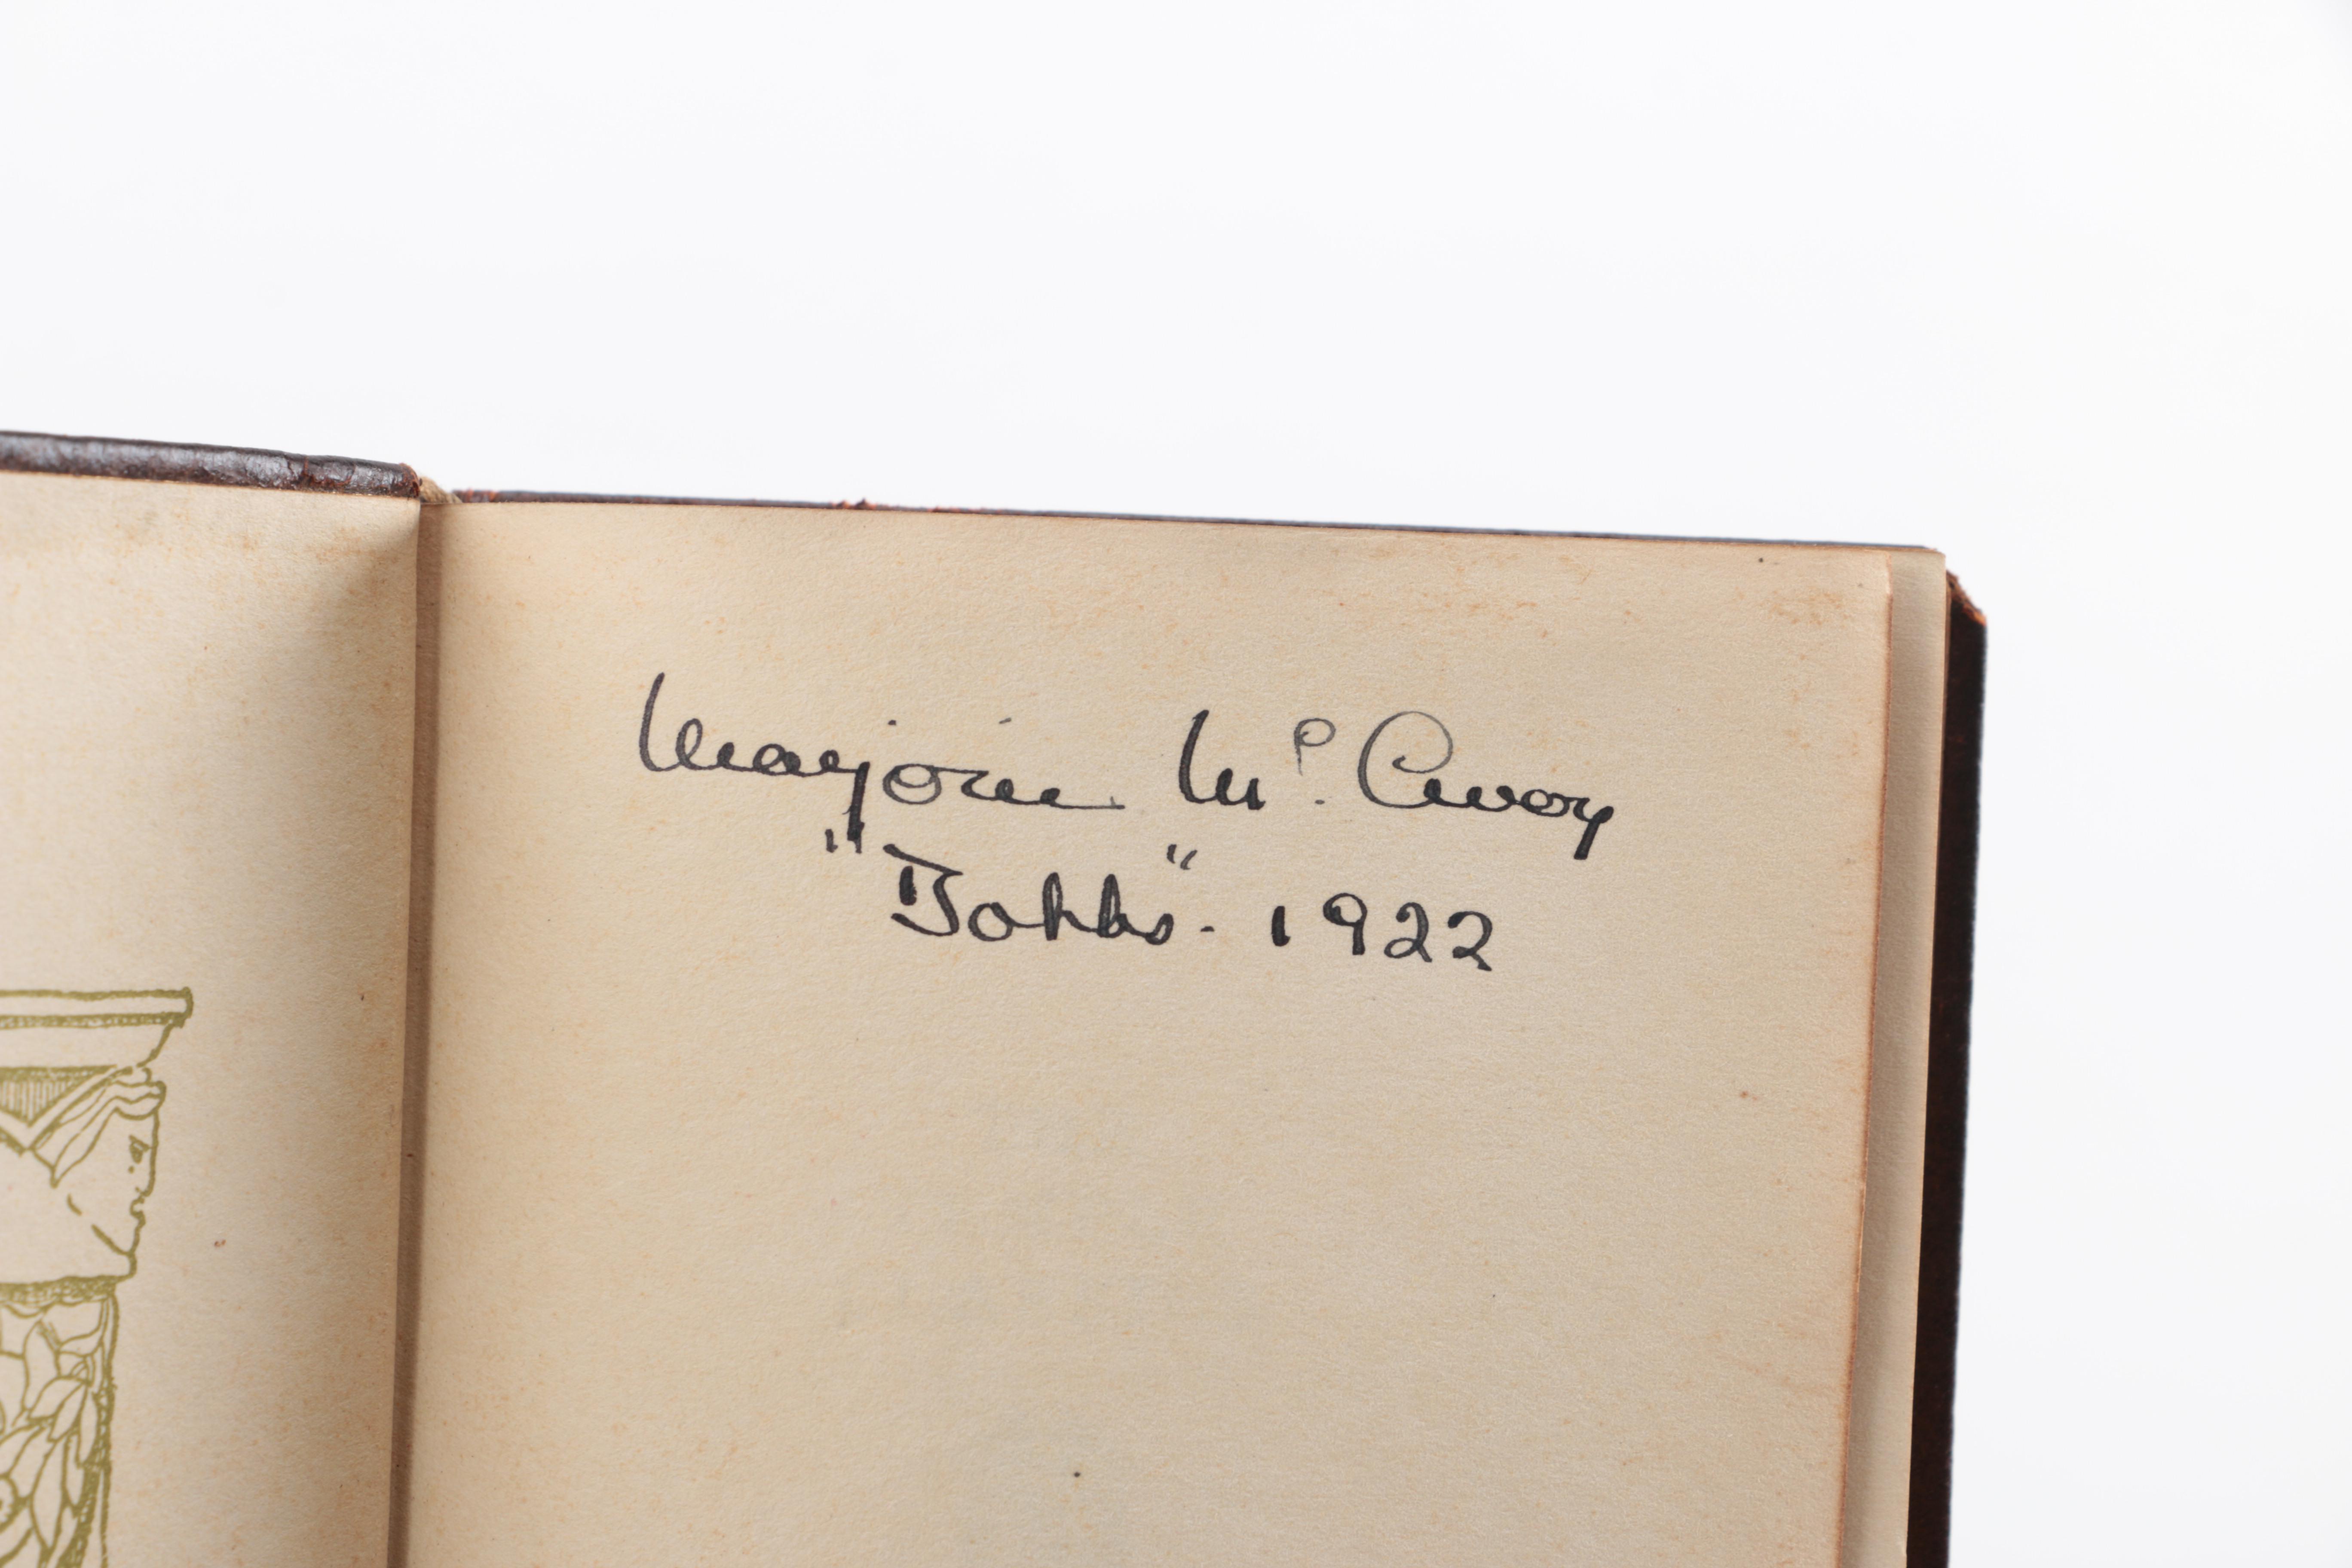 Marjorie Mc. Avoy
"Bobbs". 1922